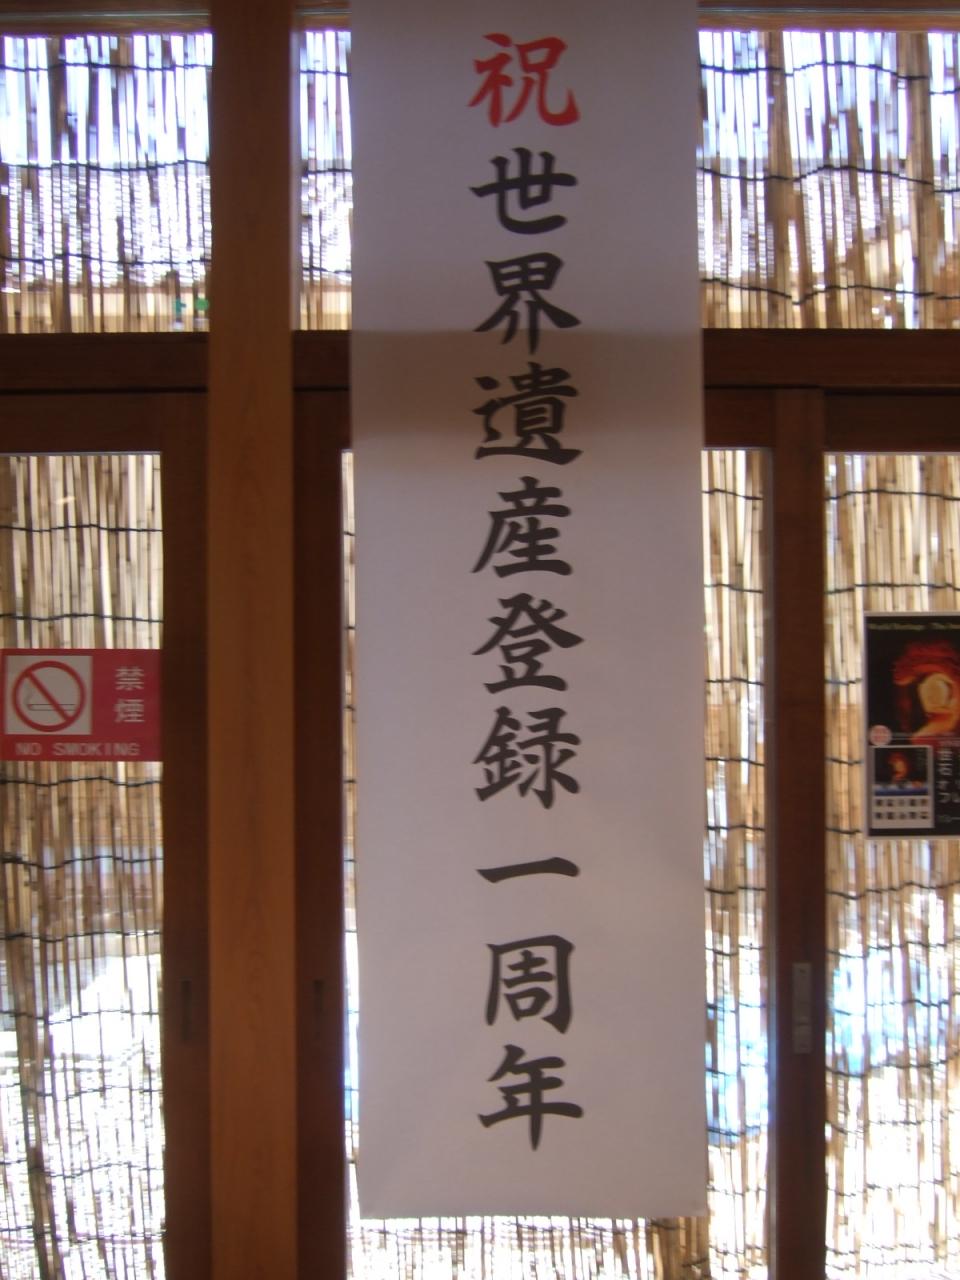 祝世界遺産登録一周年
禁煙
NO SMOKING
World Heritage